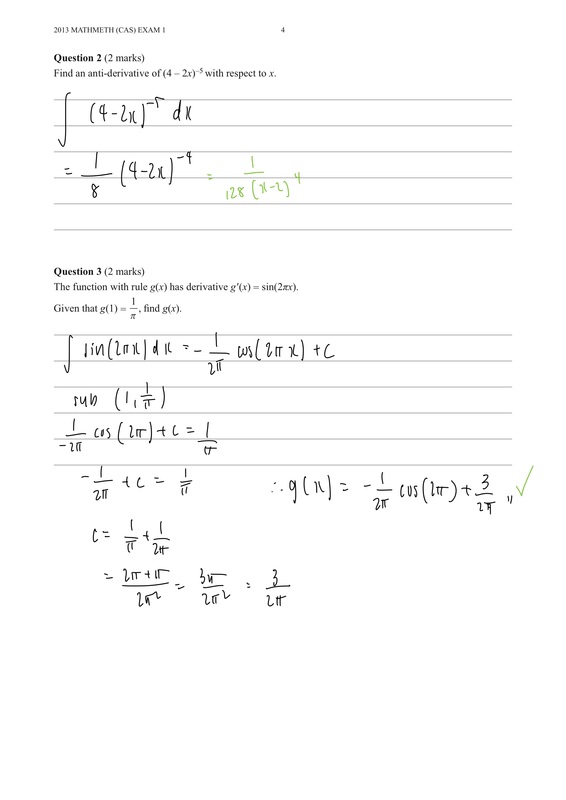 2013 MATHMETH (CAS) EXAM 1 4
Question 2 (2 marks)
Find an anti-derivative of (4 – 2x)⁻⁵ with respect to x.
∫ (4-2x)⁻⁵ dx
= 1/8 (4-2x)⁻⁴ = 1/128(x-2)⁴
Question 3 (2 marks)
The function with rule g(x) has derivative g′(x) = sin(2πx).
Given that g(1) = 1/π, find g(x).
∫ sin(2πx) dx = - 1/2π cos(2πx) + C
sub (1, 1/π)
1/-2π cos(2π) + C = 1/π
- 1/2π + C = 1/π ∴ g(x) = - 1/2π cos(2π) + 3/2π ,, ✓
C = 1/π + 1/2π
= 2π+π/2π² = 3π/2π² = 3/2π